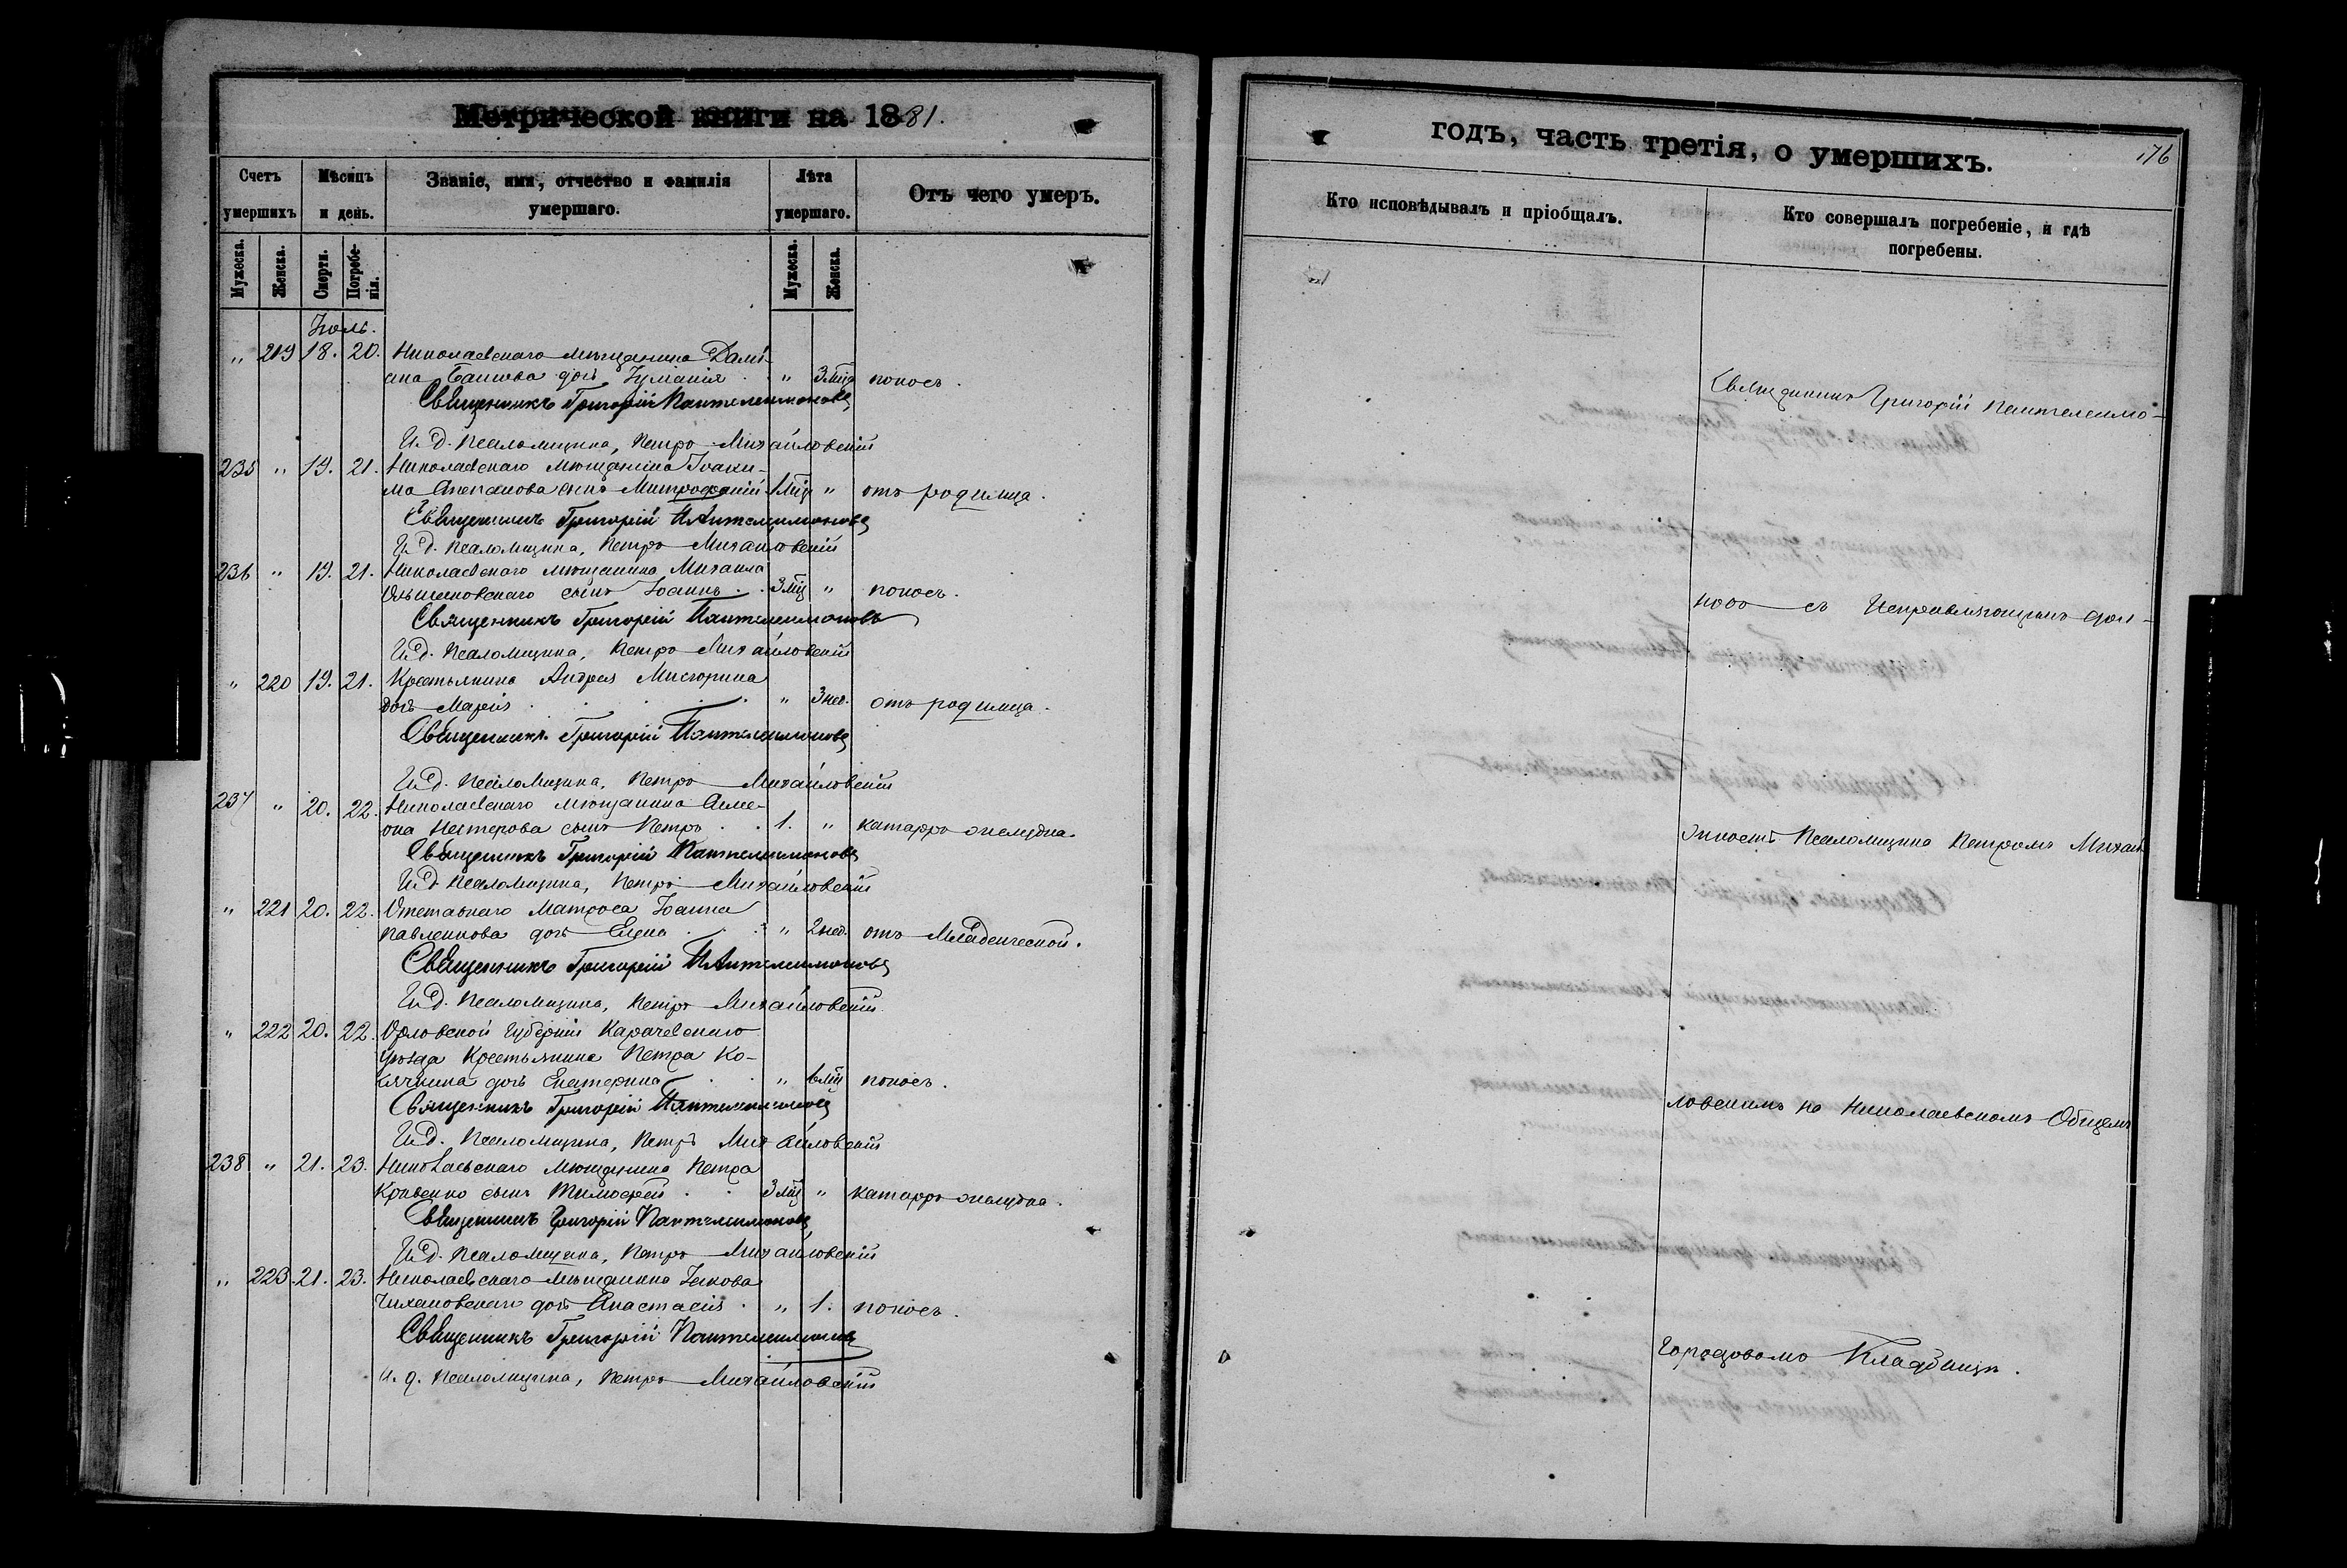 Метрической книги на 1881.
Счетъ умершихъ
Мѣсяцъ и день.
Званіе, имя, отчество и фамилія умершаго.
Лѣта умершаго.
Отъ чего умеръ.
Мужеска.
Женска.
Смерти.
Погребенія.
Мужеска.
Женска.
Іюль.
" 219 18. 20. Николаевскаго мѣщанина Дамі-
ана дочь Іуліанія " 3 мѣц поносъ.
Священникъ Григорій Пантелеимоновъ
И. д. Псаломщика, Петръ Михайловскій
235 " 19. 21. Николаевскаго мѣщанина Іоаки-
ма Степанова сынъ Митрофаній 1 мѣц " отъ родимца.
Священникъ Григорій Пантелеимоновъ
И. д. Псаломщика, Петръ Михайловскій
236 " 19. 21. Николаевскаго мѣщанина Михаила
Ольшановскаго сынъ Іоаннъ 3 мѣц " поносъ.
Священникъ Григорій Пантелеимоновъ
И. д. Псаломщика, Петръ Михайловскій
" 220 19. 21. Крестьянина Андрея
дочь Марія " 3 нед. отъ родимца.
Священникъ Григорій Пантелеимоновъ
И. д. Псаломщика, Петръ Михайловскій
237 " 20. 22. Николаевскаго мѣщанина Симе-
она Нестерова сынъ Петръ 1. " катарръ желудка.
Священникъ Григорій Пантелеимоновъ
И. д. Псаломщика, Петръ Михайловскій
" 221 20. 22. Отставнаго Матроса Іоанна
Павленкова дочь Елена " 2 нед. отъ Младенческой.
Священникъ Григорій Пантелеимоновъ
И. д. Псаломщика, Петръ Михайловскій
" 222 20. 22. Орловской Губерніи Карачевскаго
Уѣзда Крестьянина Петра Ко-
дочь Екатерина " 6 мѣц поносъ.
Священникъ Григорій Пантелеимоновъ
И. д. Псаломщика, Петръ Михайловскій
238 " 21. 23. Николаевскаго мѣщанина Петра
Кривенко сынъ Тимофей 3 мѣц " катарръ желудка.
Священникъ Григорій Пантелеимоновъ
И. д. Псаломщика, Петръ Михайловскій
" 223 21. 23. Николаевскаго мѣщанина Іакова
дочь Анастасія " 1. поносъ.
Священникъ Григорій Пантелеимоновъ
И. д. Псаломщика, Петръ Михайловскій
годъ, часть третія, о умершихъ.
176
Кто исповѣдывалъ и пріобщалъ.
Кто совершалъ погребеніе, и гдѣ погребены.
Священникъ Григорій Пантелеимо-
новъ съ Исправляющимъ дол-
жность Псаломщика Петромъ Михай
ловскимъ на Николаевскомъ Общемъ
Городовомъ Кладбищѣ.